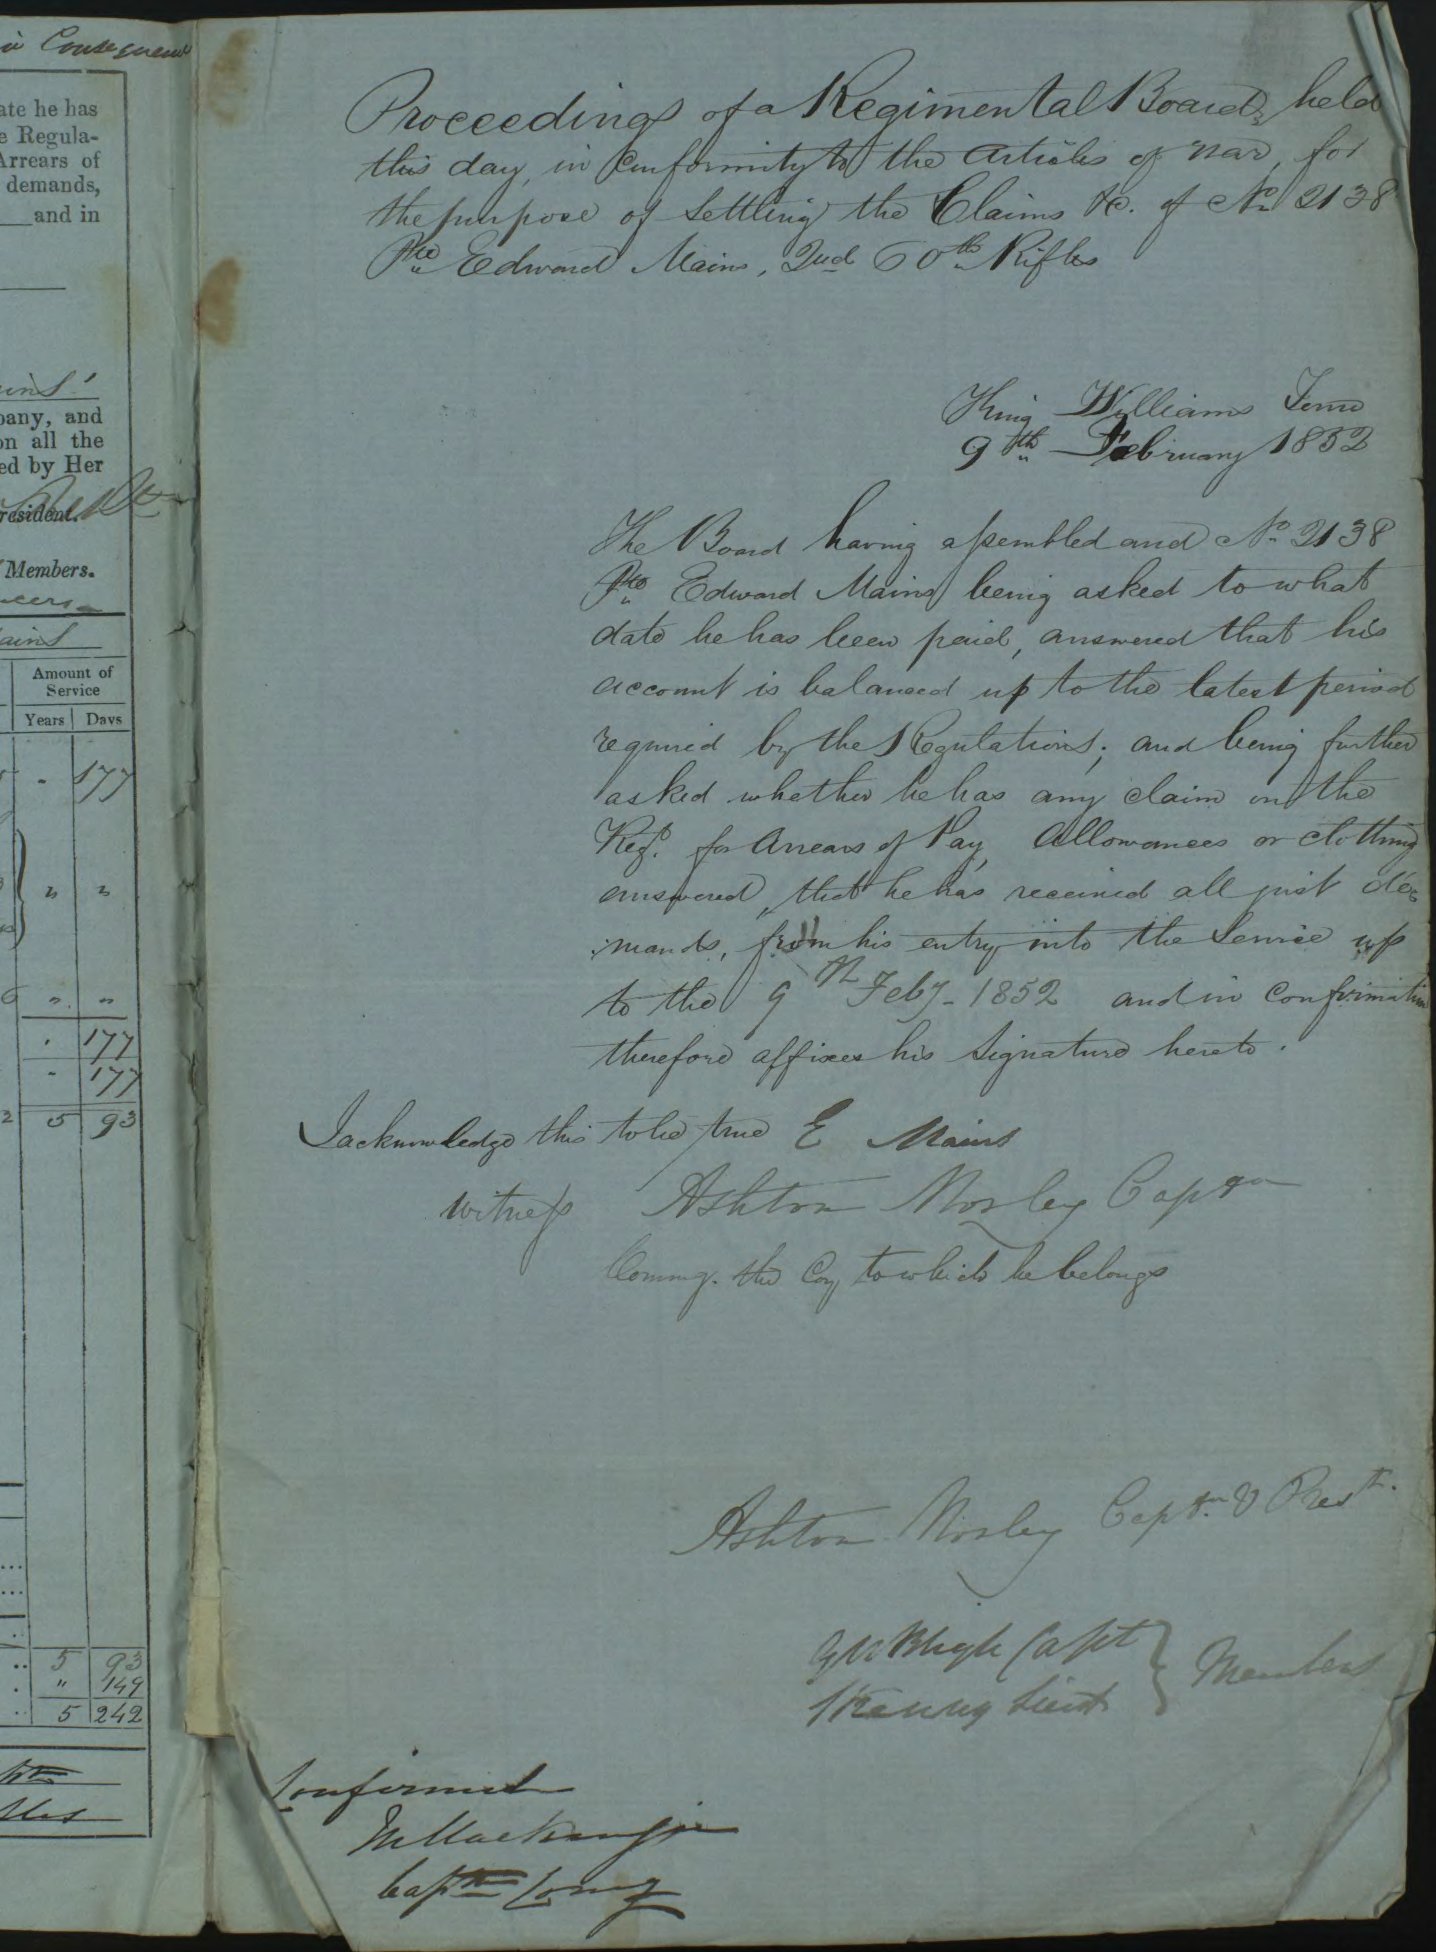 Consequence
ate he has
e Regula-
Arrears of
demands,
and in
pany, and
on all the
ed by Her
resident.
Members.
ains
Amount of
Service
Years Days
177
177
177
5 93
5 93
" 149
5 242
Proceedings of a Regimental Board, held
this day, in Conformity to the Articles of War, for
the purpose of Settling the Claims &c. of No 2138
Pte Edward Mains, 2nd 60th Rifles
King Williams Town
9th February 1852
The Board having assembled and No 2138
Pte Edward Mains being asked to what
date he has been paid, answered that his
account is balanced up to the latest period
required by the Regulations; and being further
asked whether he has any claim on the
Regt. for Arrears of Pay, Allowances or clothing
answered, that he has received all just de-
mands, from his entry into the Service up
to the 9th Feby- 1852 and in confirmation
therefore affixes his Signature hereto.
I acknowledge this to be true E Mains
Witness Ashton Mosley Captn
Commg. the Coy to which he belongs
Ashton Mosley Captn. & Prest.
Bligh Capt
Lieut
Members
Confirmed
Captn Comg